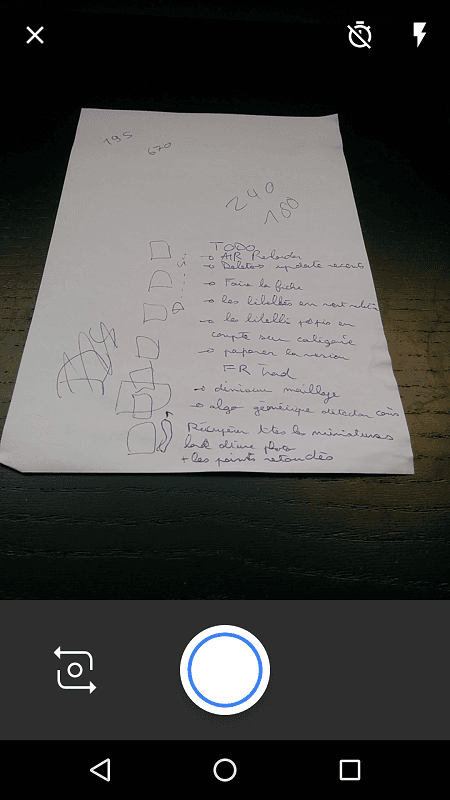 195
670
240
180
TODO
→ AIR Reloader
→ Deletes update recents
→ Faire la fiche
→ les libellés en
→ le libellé pris en
compte sur catégorie
→ préparer la version
FR trad
→ diviseur maillage
→ algo géométrique detection coins
Récupérer ttes les miniatures
lors d'une photo
+ les points retardés